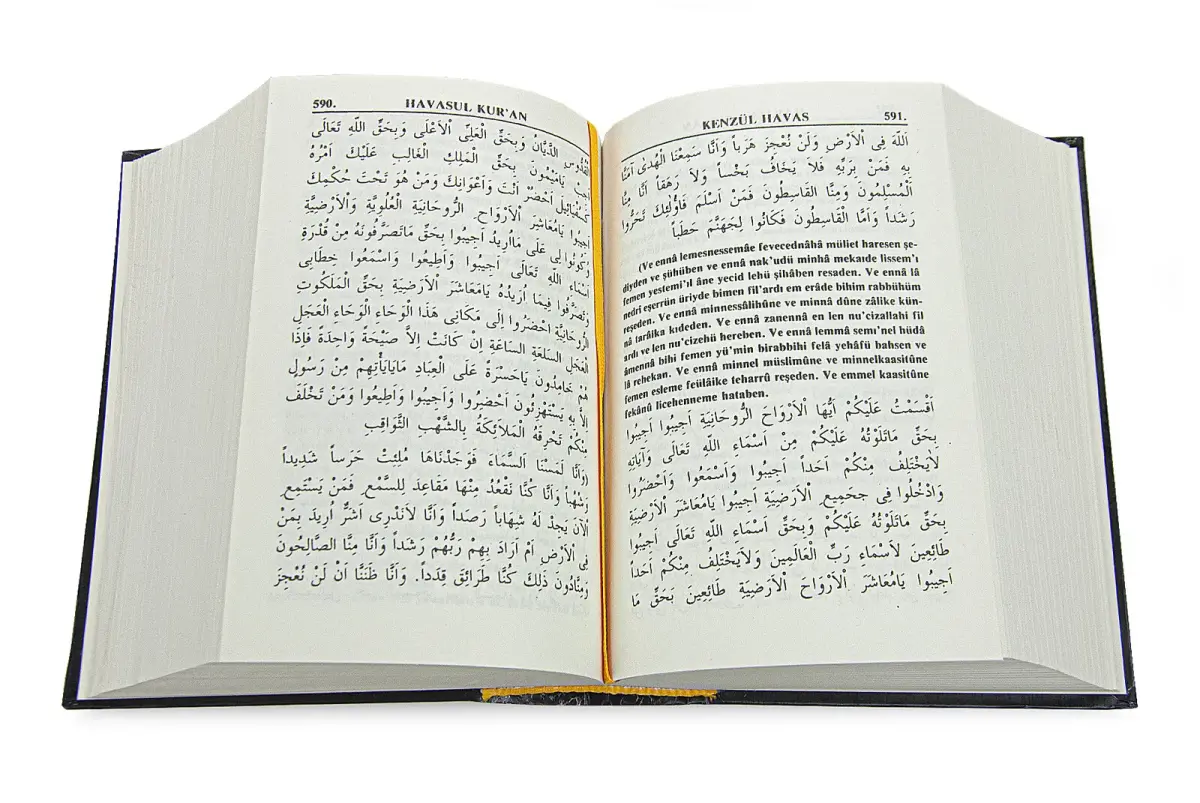 590. HAVASUL KUR'AN
الْقُدُّوسِ الدَّيَّانُ وَبِحَقِّ الْعَلِيِّ الْاَعْلَى وَبِحَقِّ اللَّهِ تَعَالَى
اَجِبْ يَامَيْمُونَ بِحَقِّ الْمَلِكِ الْغَالِبِ عَلَيْكَ اَمْرُهُ
اَحْضُرْ اَنْتَ وَاَعْوَانِكَ وَمَنْ هُوَ تَحْتَ حُكْمِكَ
اَجِيبُوا يَامَعَاشِرَ الْاَرْوَاحِ الرُّوحَانِيَّةِ الْعُلْوِيَّةِ وَالْاَرْضِيَّةِ
وَكُونُوا لِى عَلَى مَااُرِيدُ اَجِيبُوا بِحَقِّ مَاتَصَرَّفُونَهُ مِنْ قُدْرَةِ
اَسْمَاءِ اللَّهِ تَعَالَى اَجِيبُوا وَاَطِيعُوا وَاسْمَعُوا خِطَابِى
وَتَصَرَّفُوا فِيمَا اُرِيدُهُ يَامَعَاشِرَ الْاَرْضِيَّةِ بِحَقِّ الْمَلَكُوتِ
الرُّوحَانِيَّةِ اِحْضُرُوا اِلَى مَكَانِى هَذَا الْوَحَاءِ الْوَحَاءِ الْعَجَلِ
الْعَجَلِ السَّاعَةِ السَّاعَةِ اِنْ كَانَتْ اِلاَّ صَيْحَةً وَاحِدَةً فَاِذَا
هُمْ خَامِدُونَ يَاحَسْرَةً عَلَى الْعِبَادِ مَايَاْتِهِمْ مِنْ رَسُولٍ
اِلاَّ بِهِ يَسْتَهْزِئُونَ اَحْضِرُوا وَاَجِيبُوا وَاَطِيعُوا وَمَنْ تَخَلَّفَ
مِنْكُمْ تَحْرِقُهُ الْمَلاَئِكَةُ بِالشُّهُبِ الثَّوَاقِبِ
(وَاَنَّا لَمَسْنَا السَّمَاءَ فَوَجَدْنَاهَا مُلِئَتْ حَرَساً شَدِيداً
وَشُهُباً وَاَنَّا كُنَّا نَقْعُدُ مِنْهَا مَقَاعِدَ لِلسَّمْعِ فَمَنْ يَسْتَمِعِ
اْلاَنَ يَجِدْ لَهُ شِهَاباً رَصَداً وَاَنَّا لاَنَدْرِى اَشَرٌّ اُرِيدَ بِمَنْ
فِى الْاَرْضِ اَمْ اَرَادَ بِهِمْ رَبُّهُمْ رَشَداً وَاَنَّا مِنَّا الصَّالِحُونَ
وَمِنَّادُونَ ذَلِكَ كُنَّا طَرَائِقَ قِدَداً. وَاَنَّا ظَنَنَّا اَنْ لَنْ نُعْجِزَ
KENZÜL HAVAS 591.
اللَّهَ فِى الْاَرْضِ وَلَنْ نُعْجِزَ هَرَباً وَاَنَّا سَمِعْنَا الْهُدَى اَمَنَّا
بِهِ فَمَنْ بِرَبِّهِ فَلاَ يَخَافُ بَخْساً وَلاَ رَهَقاً اَنَّا مِنَّا
الْمُسْلِمُونَ وَمِنَّا الْقَاسِطُونَ فَمَنْ اَسْلَمَ فَاُولَئِكَ تَحَرَّوا
رَشَداً وَاَمَّا الْقَاسِطُونَ فَكَانُوا لِجَهَنَّمَ حَطَباً
(Ve ennâ lemesnessemâe fevecednâhâ müliet haresen şe-
diyden ve şühüben ve ennâ nak'udü minhâ mekaıde lissem'ı
femen yestemi'ıl âne yecid lehü şihâben resaden. Ve ennâ lâ
nedrî eşerrün üriyde bimen fil'ardı em erâde bihim rabbühüm
reşeden. Ve ennâ minnessâlihûne ve minnâ dûne zâlike kün-
nâ tarâika kıdeden. Ve ennâ zanennâ en len nu'cizallahi fil
ardı ve len nu'cizehü hereben. Ve ennâ lemmâ semı'nel hüdâ
âmennâ bihi femen yü'min birabbihi felâ yehâfü bahsen ve
lâ rehekan. Ve ennâ minnel müslimûne ve minnelkaasitûne
femen esleme feülâike teharrû reşeden. Ve emmel kaasitûne
fekânû licehenneme hataben.
اَقْسَمْتُ عَلَيْكُمْ اَيُّهَا الْاَرْوَاحَ الرُّوحَانِيَّةِ اَجِيبُوا اَجِيبُوا
بِحَقِّ مَاتَلَوْتُهُ عَلَيْكُمْ مِنْ اَسْمَاءِ اللَّهِ تَعَالَى وَاَيَاتِهِ
لاَيَخْتَلِفُ مِنْكُمْ اَحَداً اَجِيبُوا وَاَسْمَعُوا وَاحْضُرُوا
وَادْخُلُوا فِى جَمِيعِ الْاَرْضِيَّةِ اَجِيبُوا يَامَعَاشَرَ الْاَرْضِيَّةِ
بِحَقِّ مَاتَلَوْتُهُ عَلَيْكُمْ وَبِحَقِّ اَسْمَاءِ اللَّهِ تَعَالَى اَجِيبُوا
طَائِعِينَ لاَسْمَاءِ رَبِّ الْعَالَمِينَ وَلاَيَخْتَلِفُ مِنْكُمْ اَحَداً
اَجِيبُوا يَامَعَاشَرَ الْاَرْوَاحَ الْاَرْضِيَّةِ طَائِعِينَ بَحَقِّ مَا